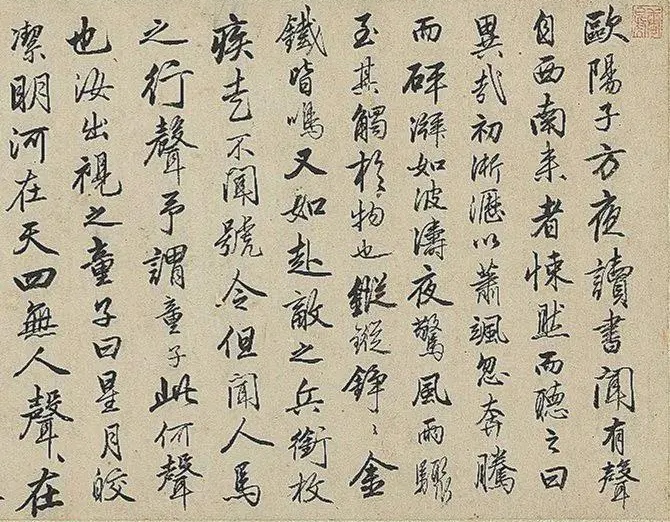 歐陽子方夜讀書聞有聲
自西南来者悚然而聽之曰
異哉初淅瀝以蕭颯忽奔騰
而砰湃如波濤夜驚風雨驟
至其觸於物也鏦鏦錚〻金
鐵皆鳴又如赴敵之兵銜枚
疾走不聞號令但聞人馬
之行聲予謂童子此何聲
也汝出視之童子曰星月皎
潔明河在天四無人聲〻在